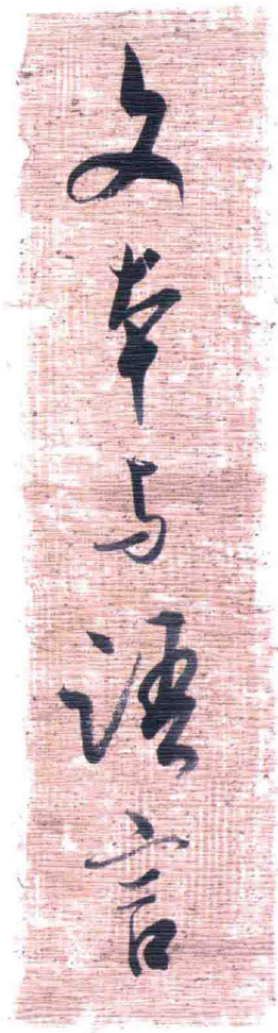 文本与语言